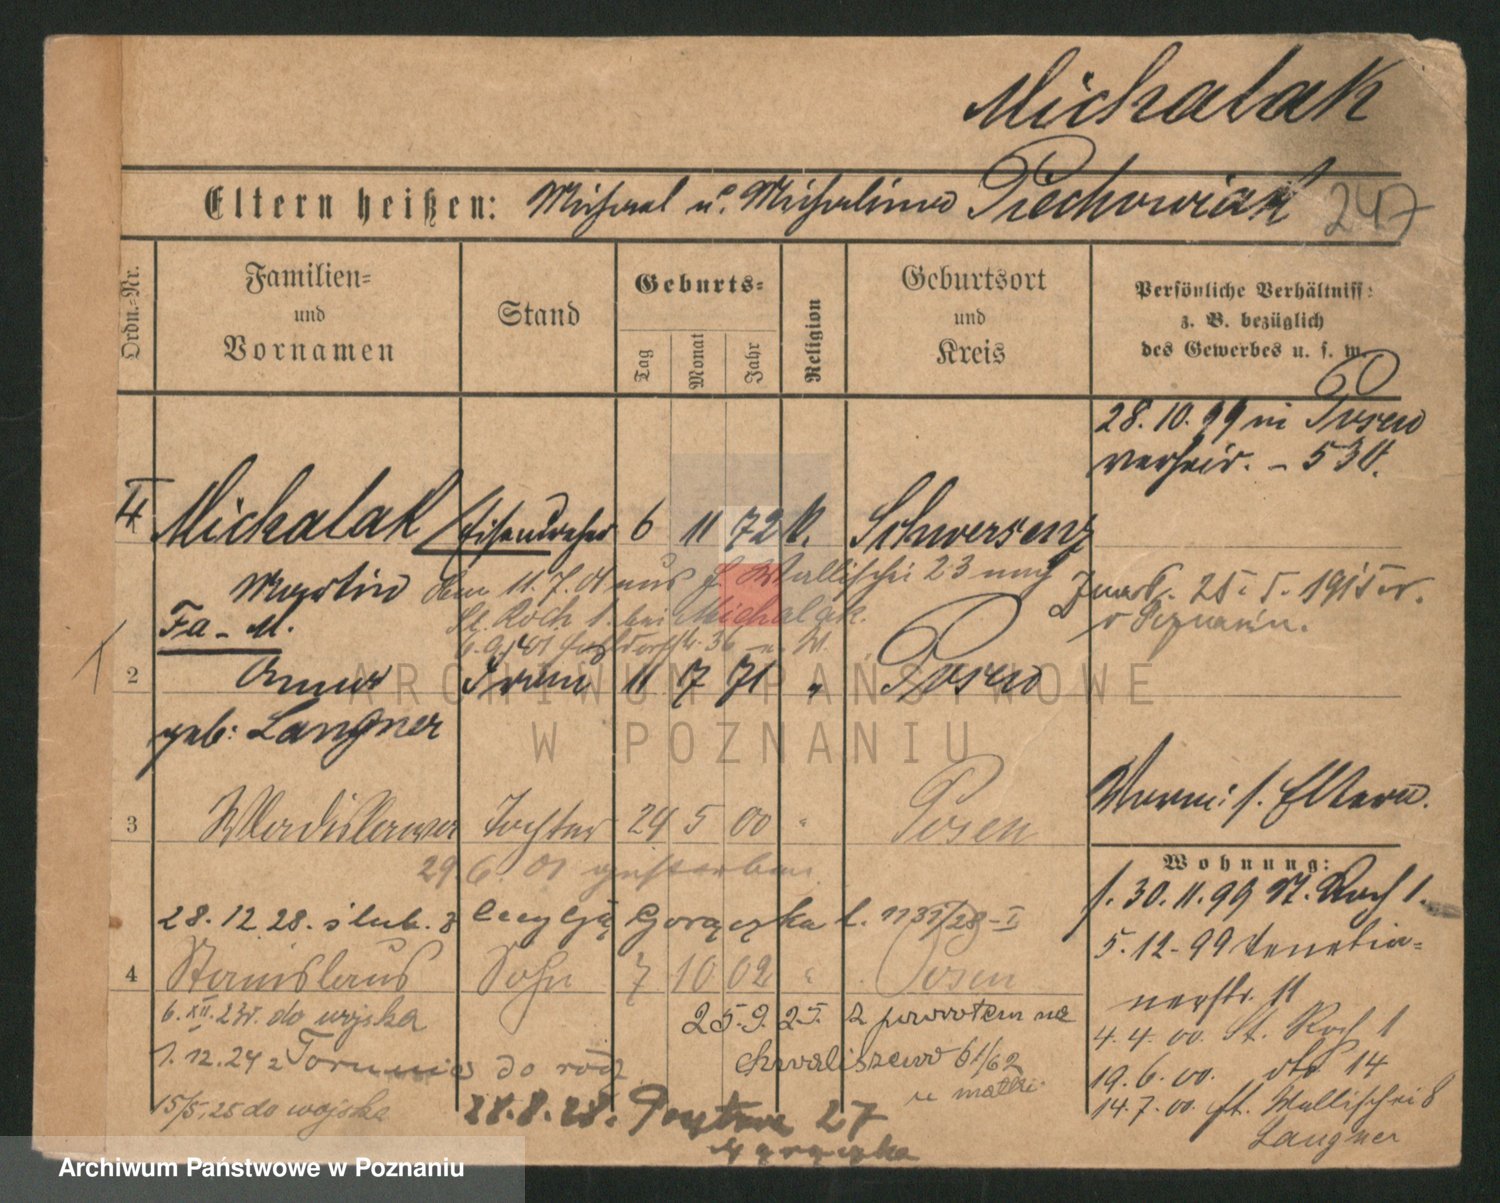 Michalak
Eltern heißen: Michael u. Michalina Piechowiak 247
Ordn.-Nr.
Familien- und Vornamen
Stand
Geburts-
Tag
Monat
Jahr
Religion
Geburtsort und Kreis
Persönliche Verhältniss:
z. B. bezüglich
des Gewerbes u. s. w.
28.10.99 in Posen
verheir. - 530.
1 Michalak Eisendreher 6 11 72 k. Schwersenz
Martin 11.7.01 aus Wallischei 23 nach
St. Roch 1. bei Michalak.
Fa - M.
2 Anna Frau 11 7 71 " Posen
geb: Langner
Zmarł. 25 1915 r.
w Poznaniu.
3 Wladislawa Tochter 24 5 00 " Posen
29 6. 01 gestorben
Eltern.
Wohnung:
28. 12 28. ślub. z Cecylją Gorączka l. 1131/28-I
4 Stanislaus Sohn 7 10 02 " Posen
6. XII. 23r. do wojska
25.9.25. z powrotem na
1. 12. 24 z Torunia do rodz
Chwaliszewo 61/62
u matki
15/5.25 do wojska
28.8.28. 27
Gorączka
f. 30.11.99 St. Roch 1.
5.12.99 Venetia-
nerstr. 11
4.4.00. St. Roch 1
19.6.00. dto 14
14.7.00. Wallischei 8
Langner
ARCHIWUM PAŃSTWOWE
W POZNANIU
Archiwum Państwowe w Poznaniu